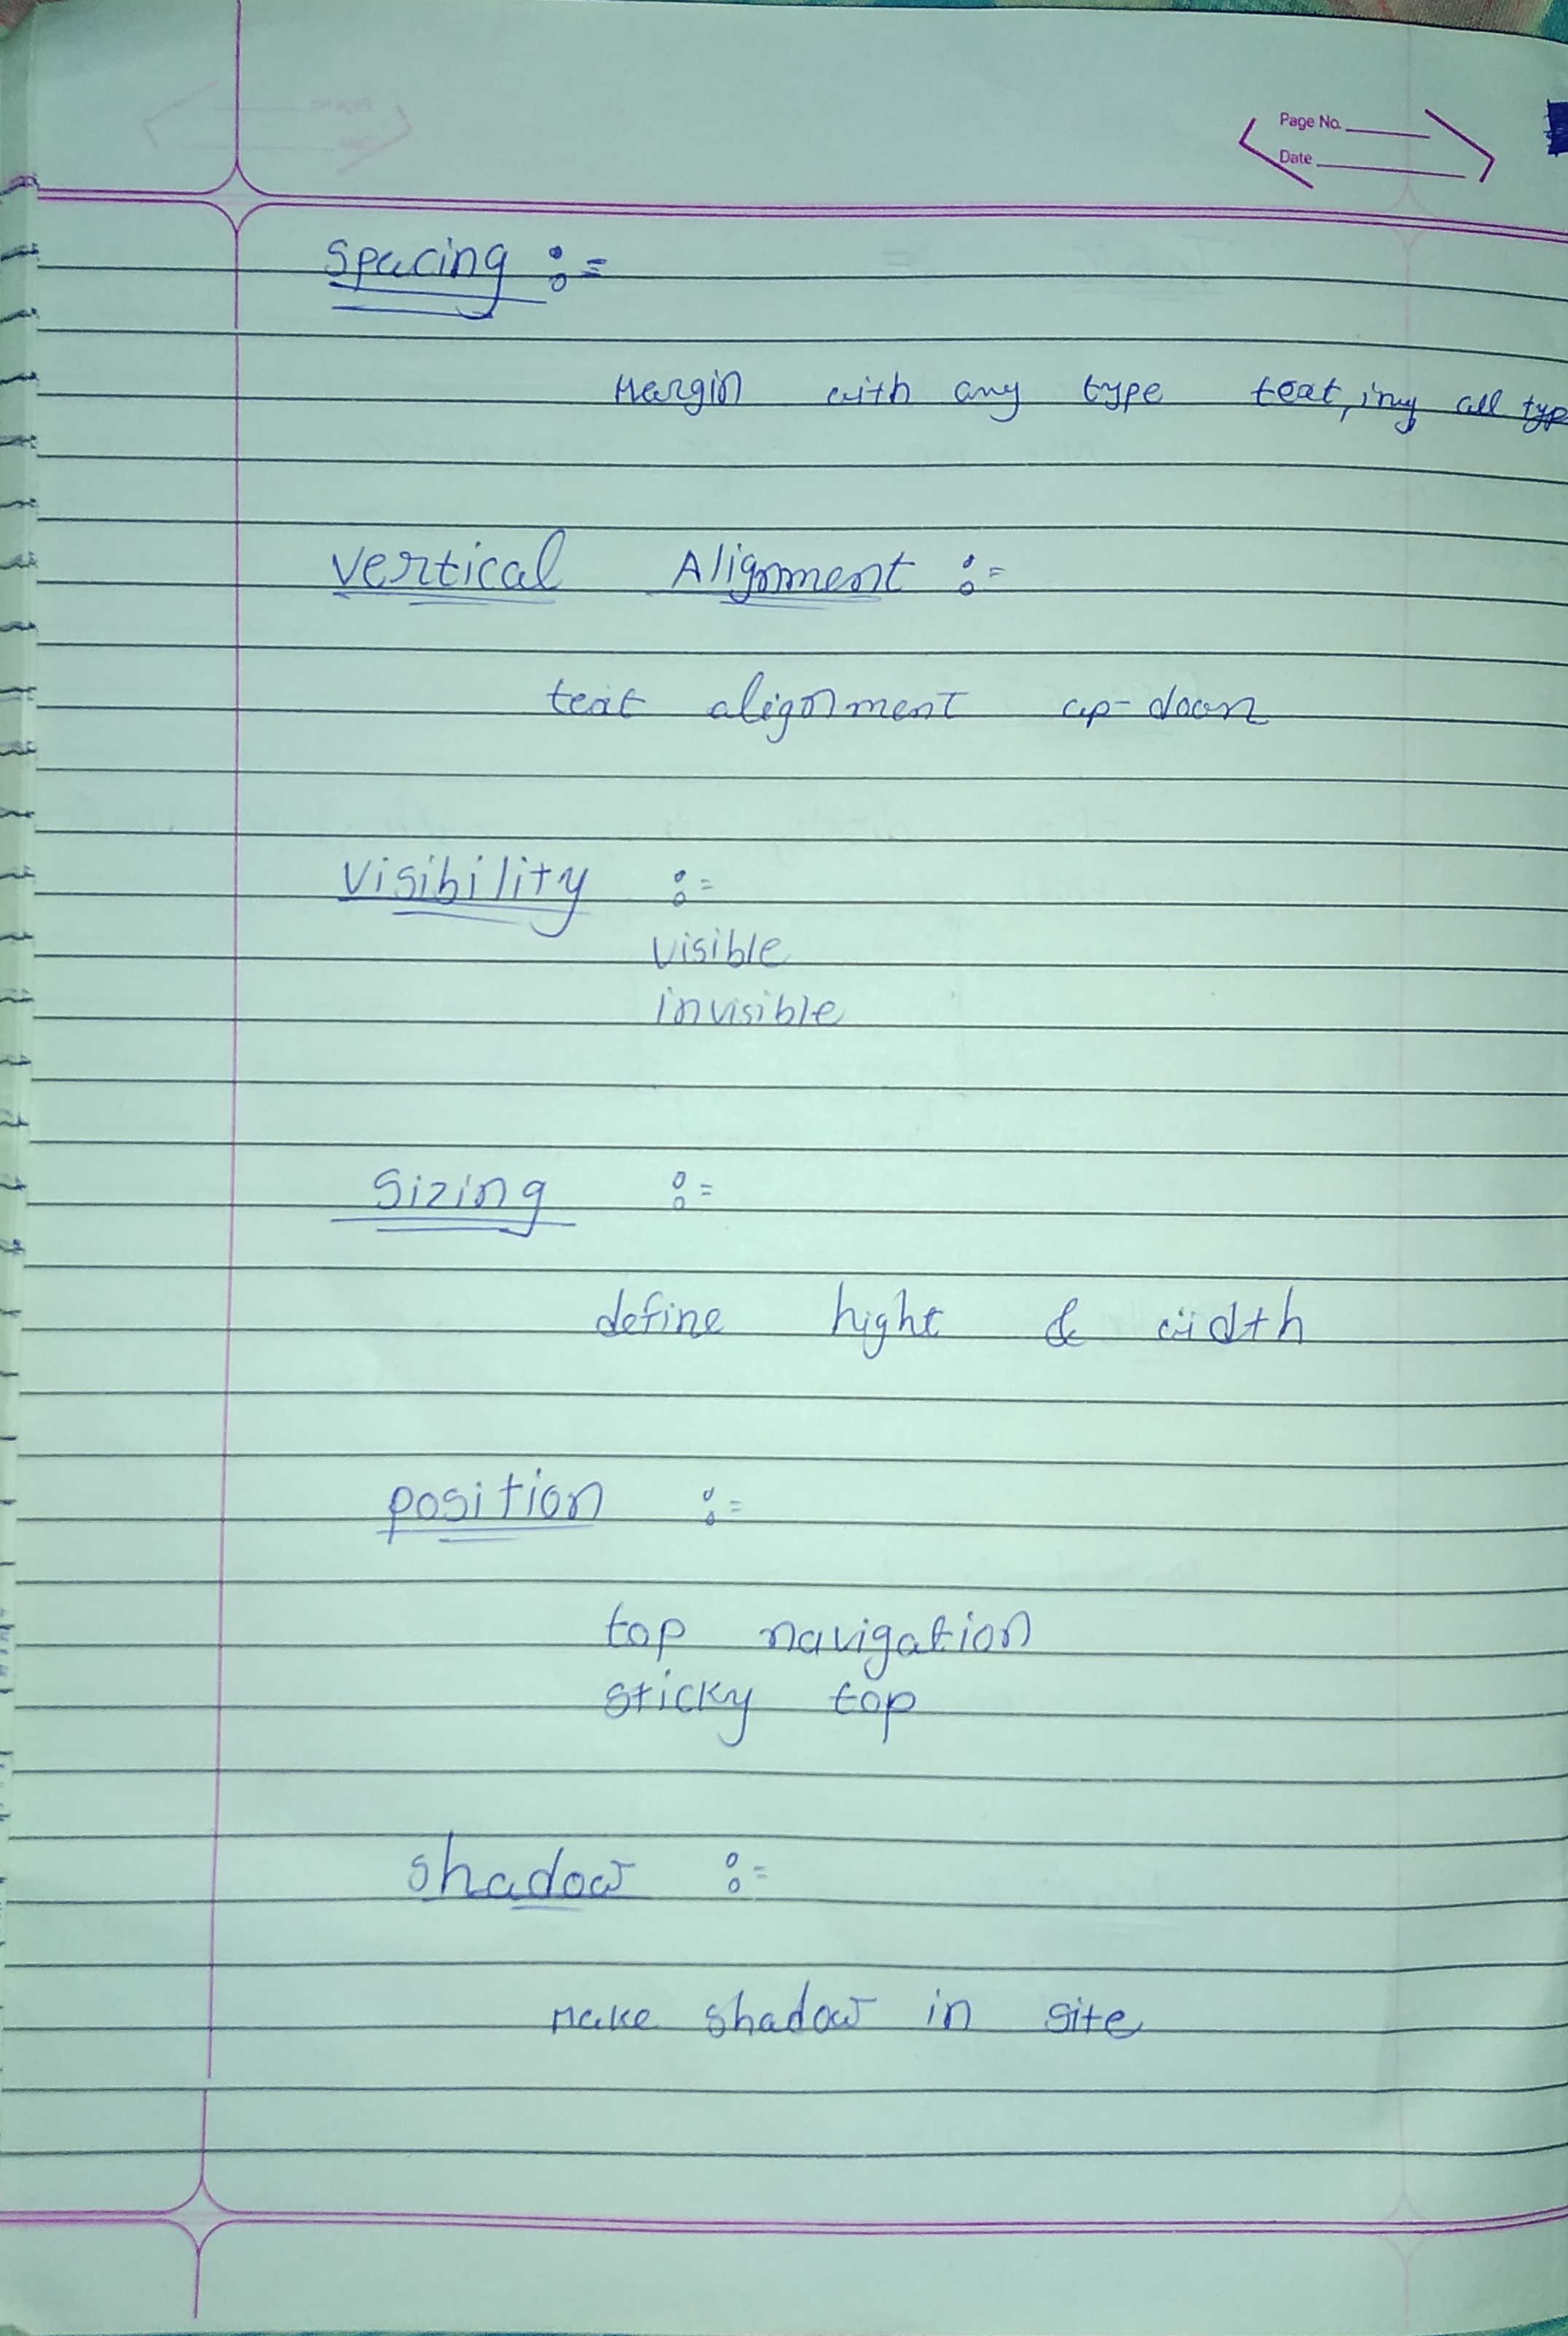 Page No.
Date
Spacing :=
Margin with any type text, img all typ
Vertical Alignment :=
text alignment up-down
Visibility :=
visible
invisible
Sizing :=
define hight & width
position :=
top navigation
sticky top
shadow :=
Make shadow in site